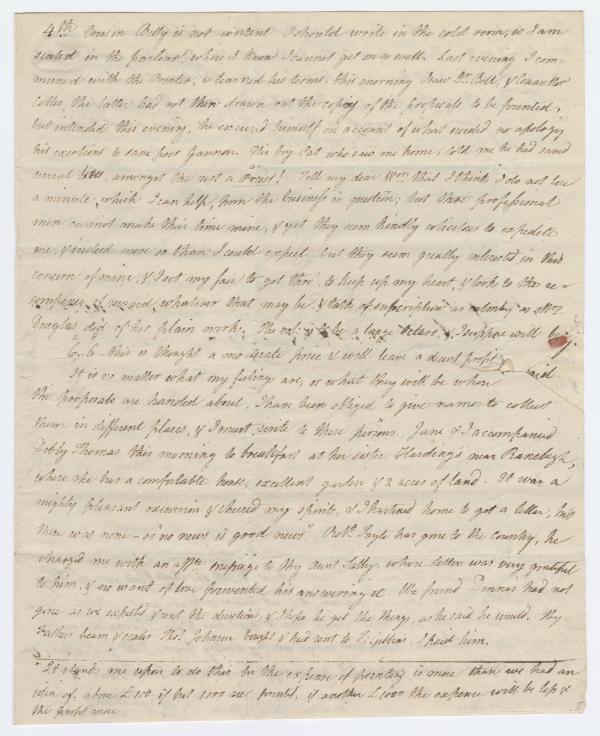 4th Cousin Betty is not content I should write in the cold room, so I am
seated in the parlour, where I know I cannot get on so well. Last evening I com-
muned with the Printer, & learned his terms. this morning I saw Dr. Bell, & Counsellor
Colles, the latter had not then drawn out the copy of the proposals to be printed,
but intended this evening, he excused himself on account of what needed no apology
his exertions to save poor Gannon. This boy Pat who saw me home, told me he had saved
several lives, amongst the rest a Priest! Tell my dear Wm that I think I do not lose
a minute, which I can help, from the business in question; but these professional
men cannot make their time mine, & yet they seem kindly solicitous to expedite
me, & indeed more so than I could expect, but they seem greatly interested in this
concern of mine, & I set my face to get thro', to keep up my heart, & look to the re-
compense of reward, whatever that may be, & talk of subscription as calmly as Mrs
Douglas did of her plain work. The vol: is to be a large Octavo, & I suppose will be
this is thought a moderate price & will leave a decent profit said
It is no matter what my feelings are, or what they will be when
the proposals are handed about. I have been obliged to give names to collect
them in different places, & I must write to these persons. Jane & I accompanied
Debby Thomas this morning to breakfast at her sister Harding's near Ranelagh,
where she has a comfortable house, excellent garden & 2 acres of land. It was a
mighty pleasant excursion & cheered my spirits, & I hastened home to get a letter, but
there was none - so "no news is good news". Robt. Fayle has gone to the country, he
charged me with an affte message to thy Aunt Sally, whose letter was very grateful
to him, & no want of love prevented his answering it. We found Dennis had not
gone as we expected & sent the directions, & I hope he got the things, as he said he would. Thy
Father's beam & scales Thos. Johnson bought & had sent to I. Gibbins, I paid him.
It stands me upon to do this for the expense of printing is more than we had an
idea of, above £100 if but 1000 are printed, if another £1000 the expence will be less &
the profit more